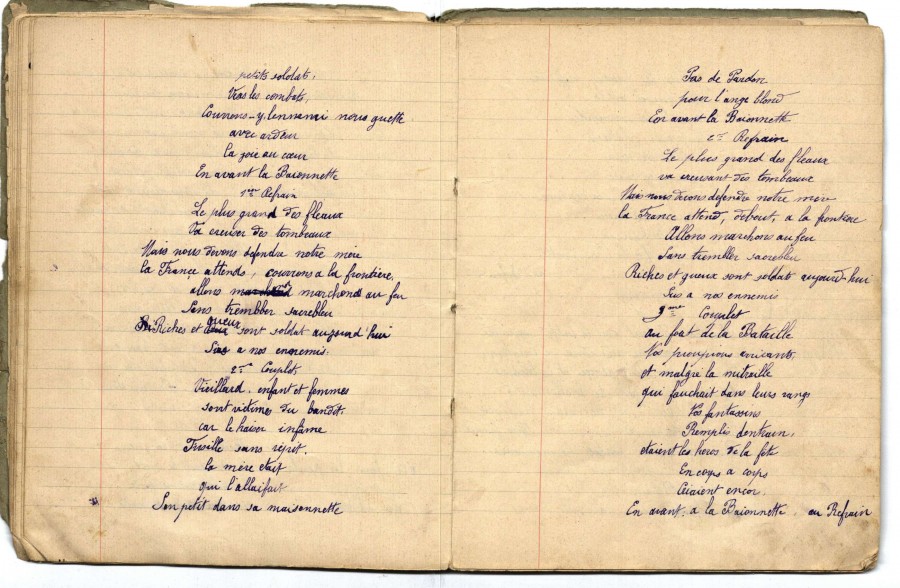 petits soldats,
Vers les combats,
Courrons-y, lennemi nous guette
avec ardeur
la joie au cœur
En avant la Baionnette
1er Refrain
Le plus grand des fleaux
Va creuser des tombeaux
Mais nous devons defendre notre mère
la France attends, courrons a la frontière,
allons marchons au feu
Sans trembler sacrebleu
Riches et gueux sont soldat aujourd'hui
Sus a nos ennemis.
2me Couplet,
Vieillard, enfant et femmes
sont victimes du bandit.
car le kaiser infâme
Fusille sans répit.
la mère etait
qui l'allaitait
Son petit dans sa maisonnette
Pas de Pardon
pour l'ange blond
En avant la Baionnette
2me Refrain
Le plus grand des fleaux
va creusant des tombeaux
Mais nous devons defendre notre mère
la France attend, debout, a la frontière
Allons marchons au feu
Sans trembler sacrebleu
Riches et gueux sont soldats aujourd-hui
Sus a nos ennemis
3me Couplet
au fort de la Bataille
Nos pioupious
et malgré la mitraille
qui fauchait dans leurs rangs
Nos fantassins
Remplis dentrain,
etaient les heros de la fête
En corps a corps
Criaient encor.
En avant, a la Baionnette. au Refrain